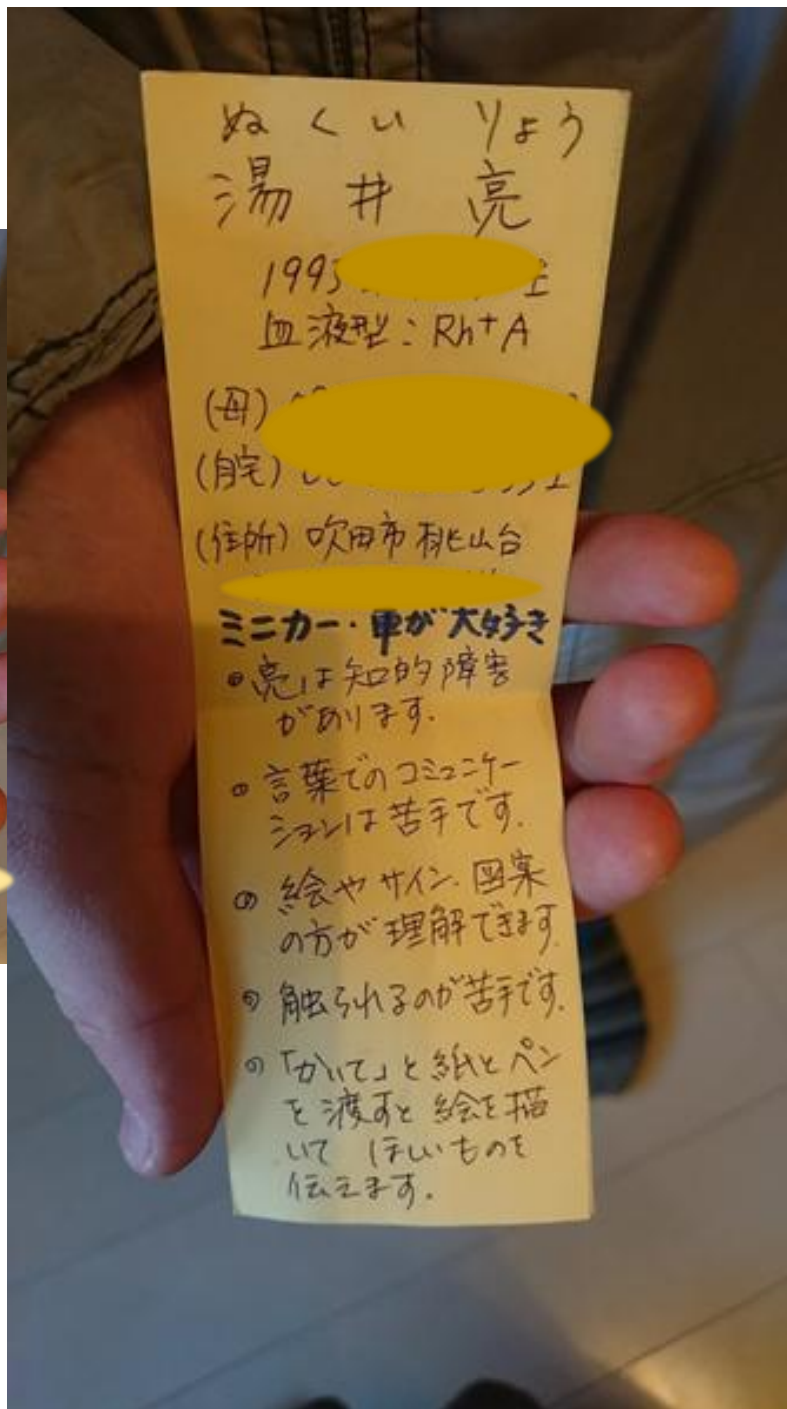 ぬくい りょう
湯井 亮
1993
血液型：Rh+A
(母)
(自宅)
(住所) 吹田市桃山台
ミニカー・車が大好き
・亮は知的障害
があります.
・言葉でのコミュニケー
ションは苦手です.
・絵やサイン、図案
の方が理解できます.
・触られるのが苦手です.
・「かいて」と紙とペン
を渡すと絵を描
いて ほしいものを
伝えます.